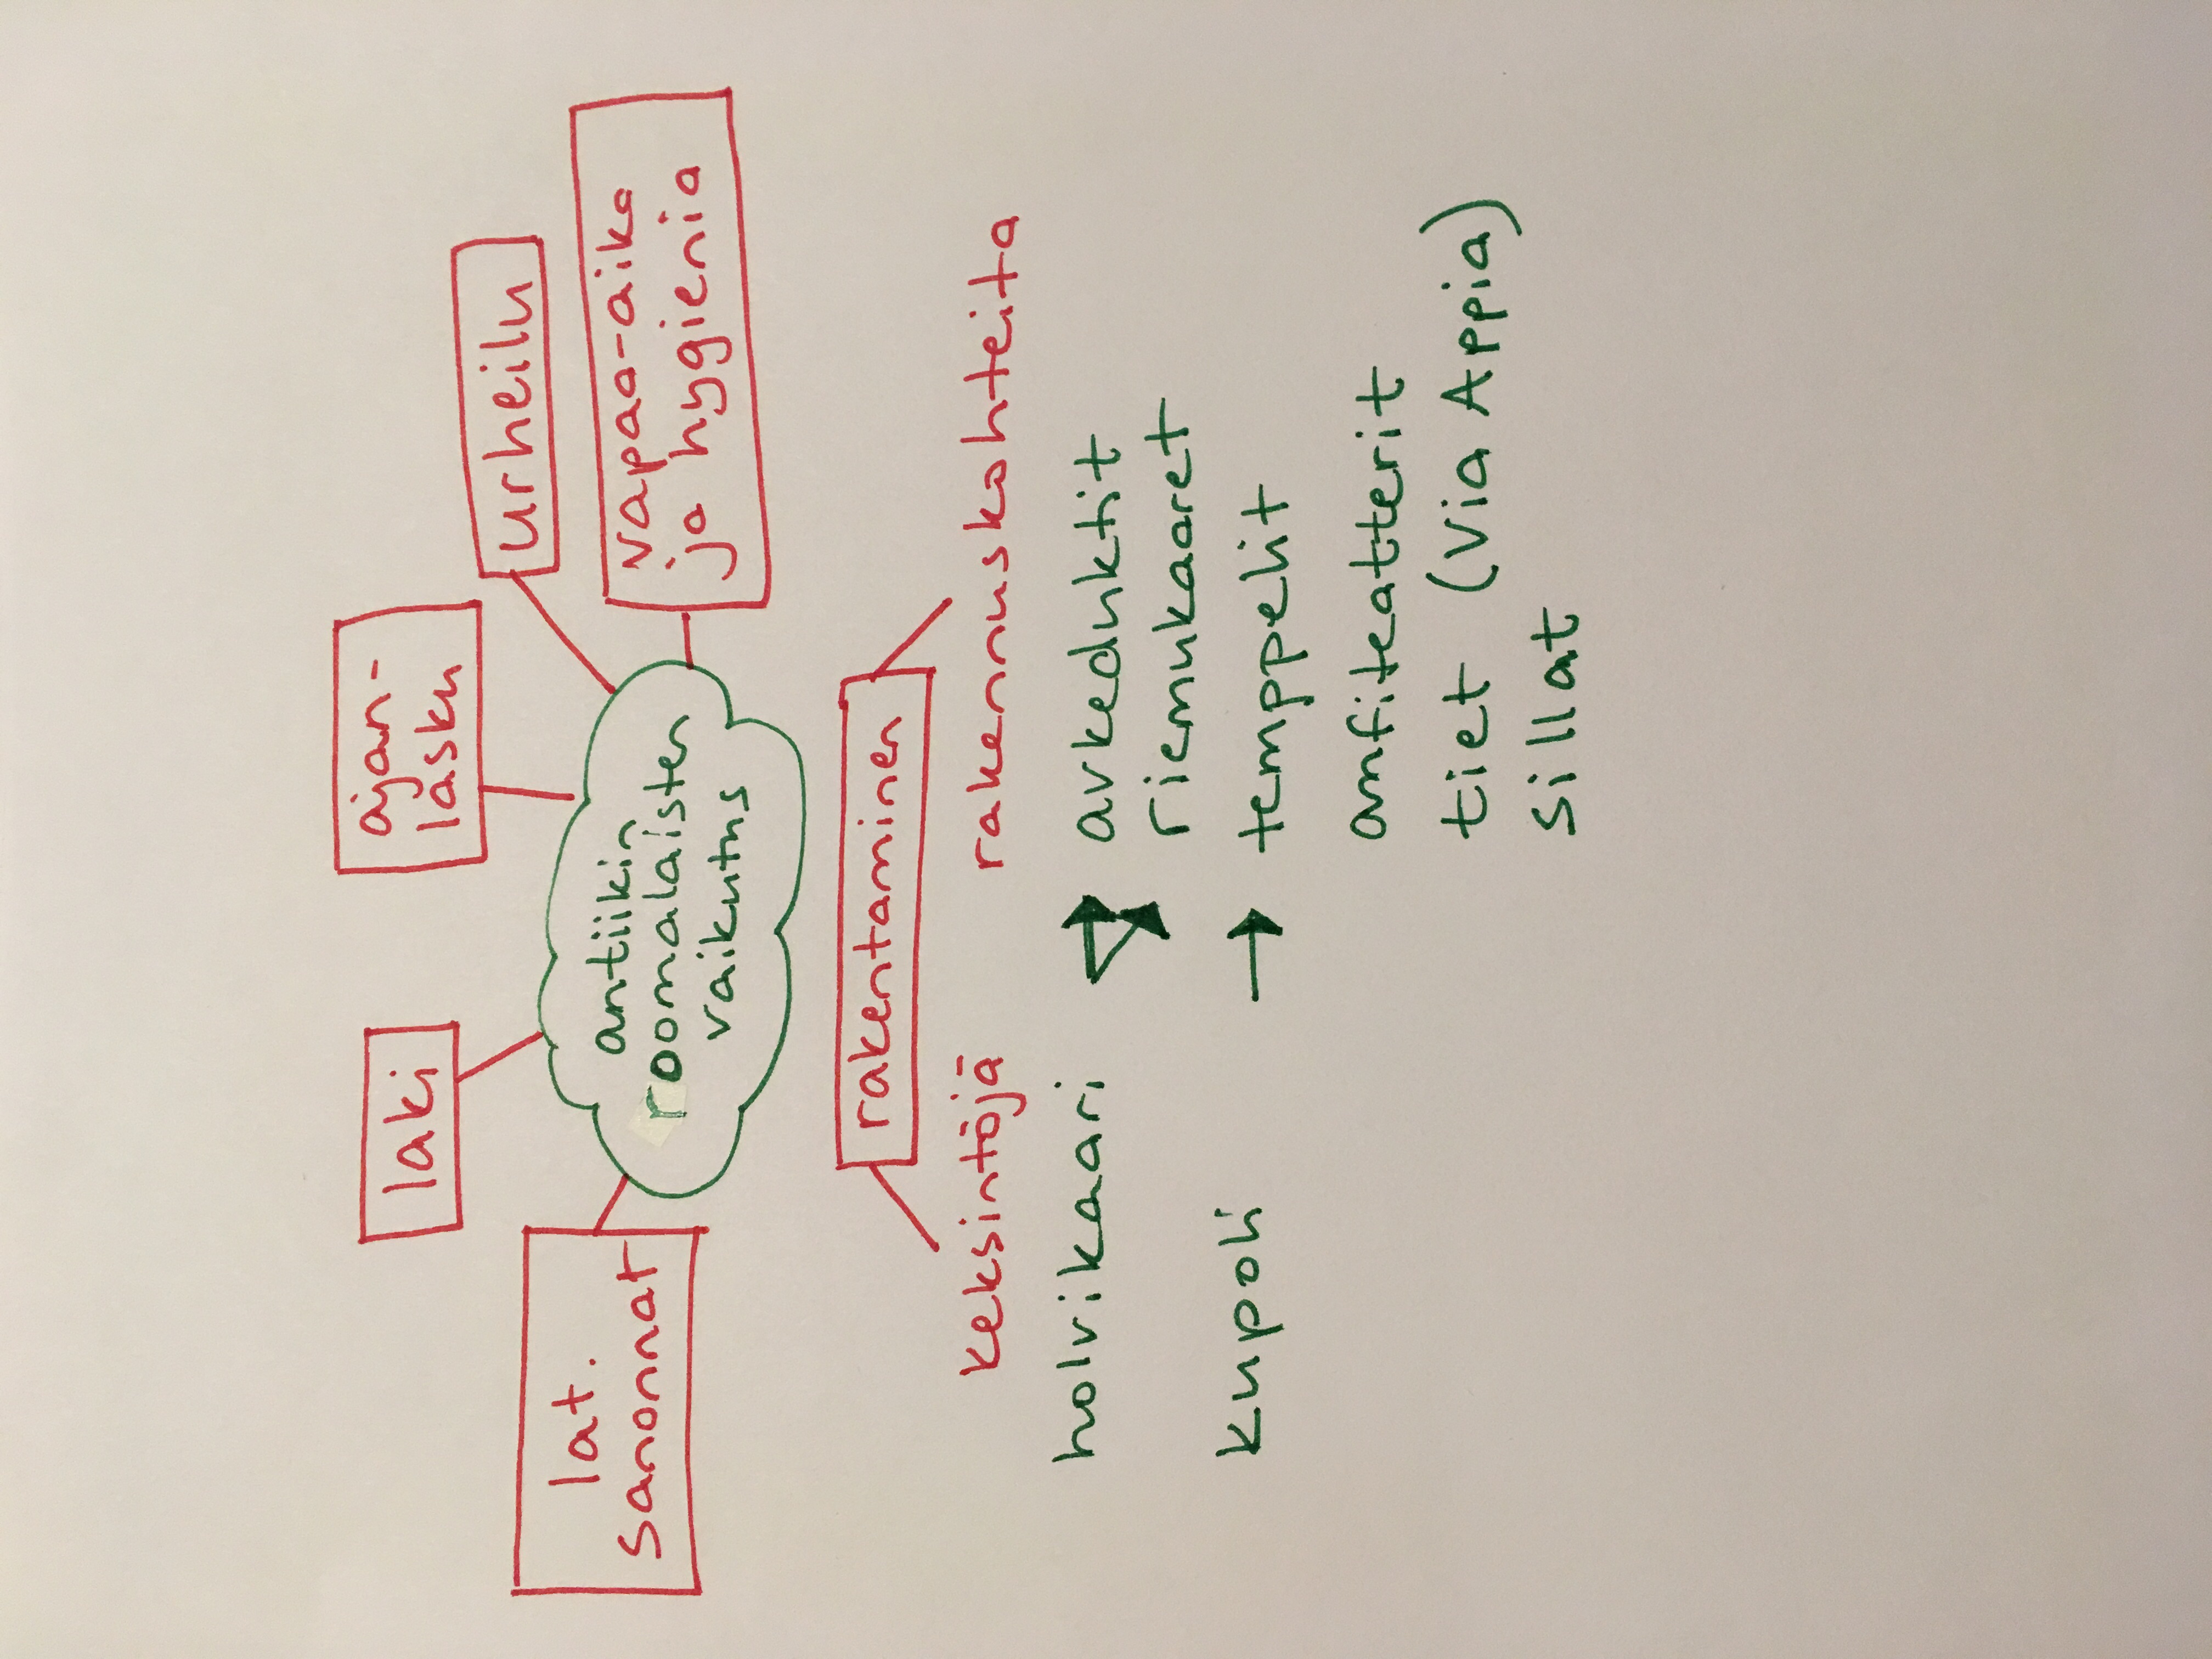 lat.
sanonnat
laki
ajan-
lasku
urheilu
vapaa-aika
ja hygienia
antiikin
roomalaisten
vaikutus
rakentaminen
keksintöjä
rakennuskohteita
holvikaari → avkeduktit
riemukaaret
kupoli → temppelit
amfiteatterit
tiet (Via Appia)
sillat